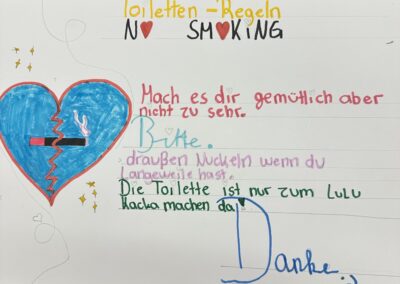 Toiletten-Regeln
NO SMOKING
Mach es dir gemütlich aber
nicht zu sehr.
Bitte.
draußen Nuckeln wenn du
Langeweile hast.
Die Toilette ist nur zum LuLu
Kacka machen da
Danke.